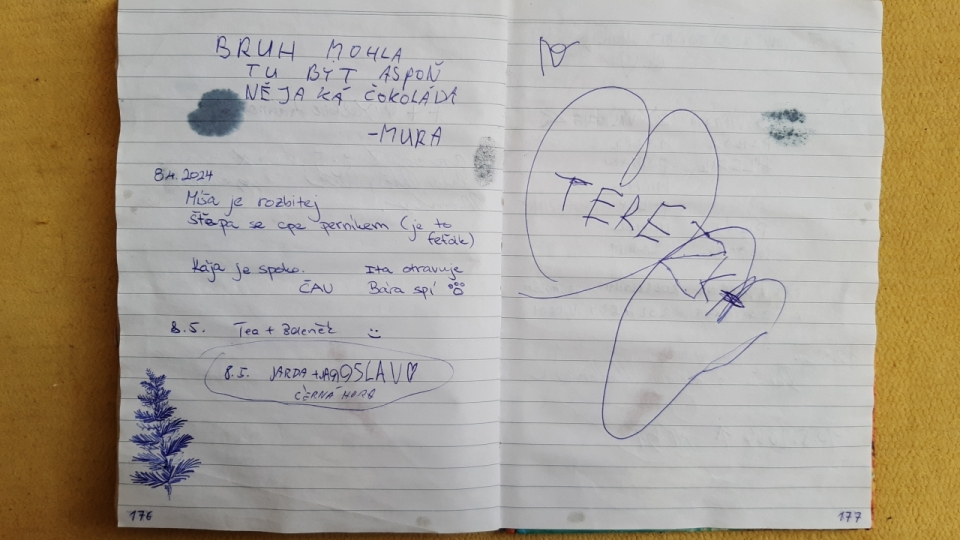 BRUH MOHLA
TU BÝT ASPOŇ
NĚJAKÁ ČOKOLÁDA
-MURA
8.4. 2024
Míša je rozbitej
Štěpa se cpe perníkem (je to
feťák)
Kája je spoko. Ita otravuje
ČAU Bára spí
8.5. Tea +
8.5. JARDA + JAROSLAV
ČERNÁ HORA
176
TEREZKA
177